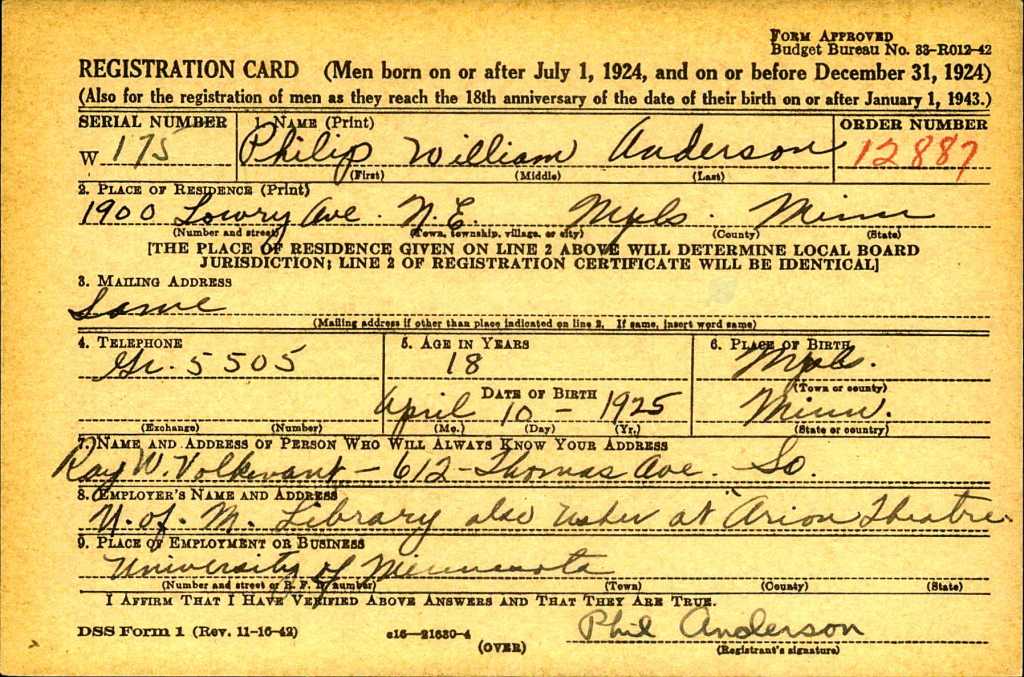 FORM APPROVED
Budget Bureau No. 33-R012-42
REGISTRATION CARD (Men born on or after July 1, 1924, and on or before December 31, 1924)
(Also for the registration of men as they reach the 18th anniversary of the date of their birth on or after January 1, 1943.)
SERIAL NUMBER 1. NAME (Print) ORDER NUMBER
W 175 Philip William Anderson 12887
(First) (Middle) (Last)
2. PLACE OF RESIDENCE (Print)
1900 Lowry Ave. N.E. Mpls. Minn
(Number and street) (Town, township, village, or city) (County) (State)
[THE PLACE OF RESIDENCE GIVEN ON LINE 2 ABOVE WILL DETERMINE LOCAL BOARD
JURISDICTION; LINE 2 OF REGISTRATION CERTIFICATE WILL BE IDENTICAL]
3. MAILING ADDRESS
Same
(Mailing address if other than place indicated on line 2. If same, insert word same)
4. TELEPHONE 5. AGE IN YEARS 6. PLACE OF BIRTH
Gr. 5505 18 Mpls.
(Town or county)
DATE OF BIRTH
April 10 - 1925 Minn.
(Exchange) (Number) (Mo.) (Day) (Yr.) (State or country)
7. NAME AND ADDRESS OF PERSON WHO WILL ALWAYS KNOW YOUR ADDRESS
Ray W. Volkwant - 612 - Thomas Ave. So.
8. EMPLOYER'S NAME AND ADDRESS
U. of. M. Library also usher at "Arion Theatre
9. PLACE OF EMPLOYMENT OR BUSINESS
University of Minnesota
(Number and street or R. F. D. number) (Town) (County) (State)
I AFFIRM THAT I HAVE VERIFIED ABOVE ANSWERS AND THAT THEY ARE TRUE.
DSS Form 1 (Rev. 11-16-42) c16-21630-4 Phil Anderson
(OVER) (Registrant's signature)